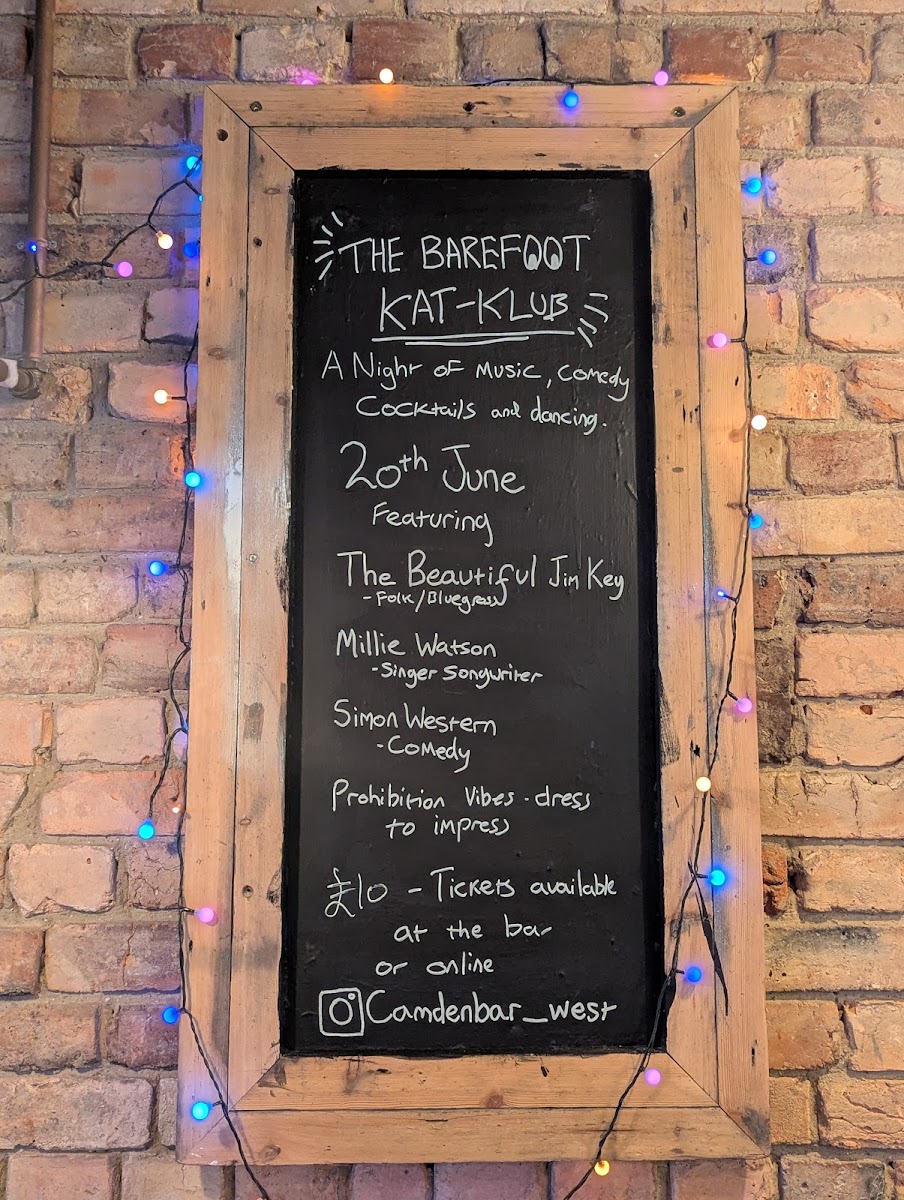 THE BAREFOOT
KAT-KLUB
A Night of Music, comedy
Cocktails and dancing.
20th June
Featuring
The Beautiful Jim Key
- Folk/Bluegrass
Millie Watson
- Singer Songwriter
Simon Western
- Comedy
Prohibition Vibes - dress
to impress
£10 - Tickets available
at the bar
or online
Camdenbar_west